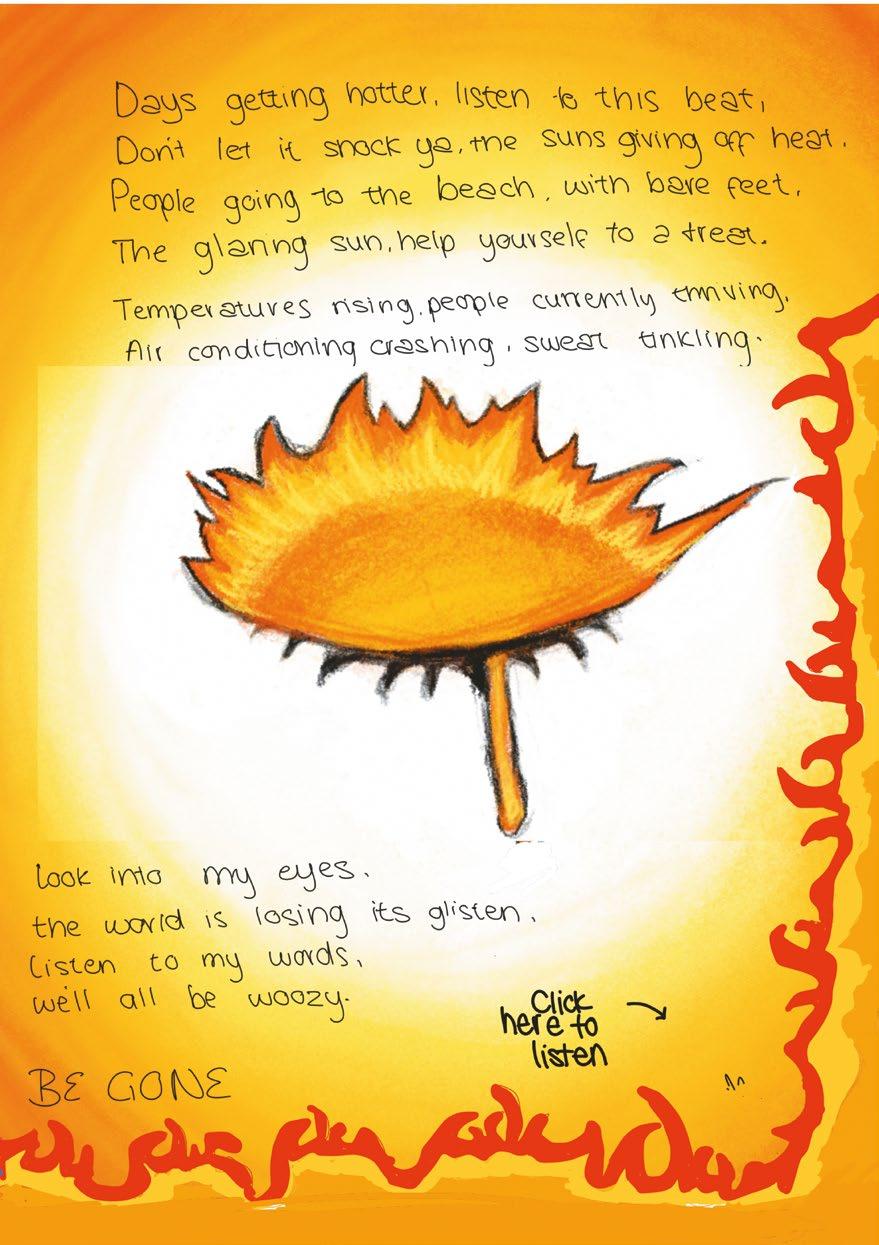 Days getting hotter, listen to this beat,
Don't let it shock ya, the suns giving off heat.
People going to the beach, with bare feet,
The glaring sun, help yourself to a treat.
Temperatures rising, people currently thriving,
Air conditioning crashing, sweat tinkling.
Look into my eyes,
the world is losing its glisten,
Listen to my words,
we'll all be woozy.
Click
here to
listen
BE GONE